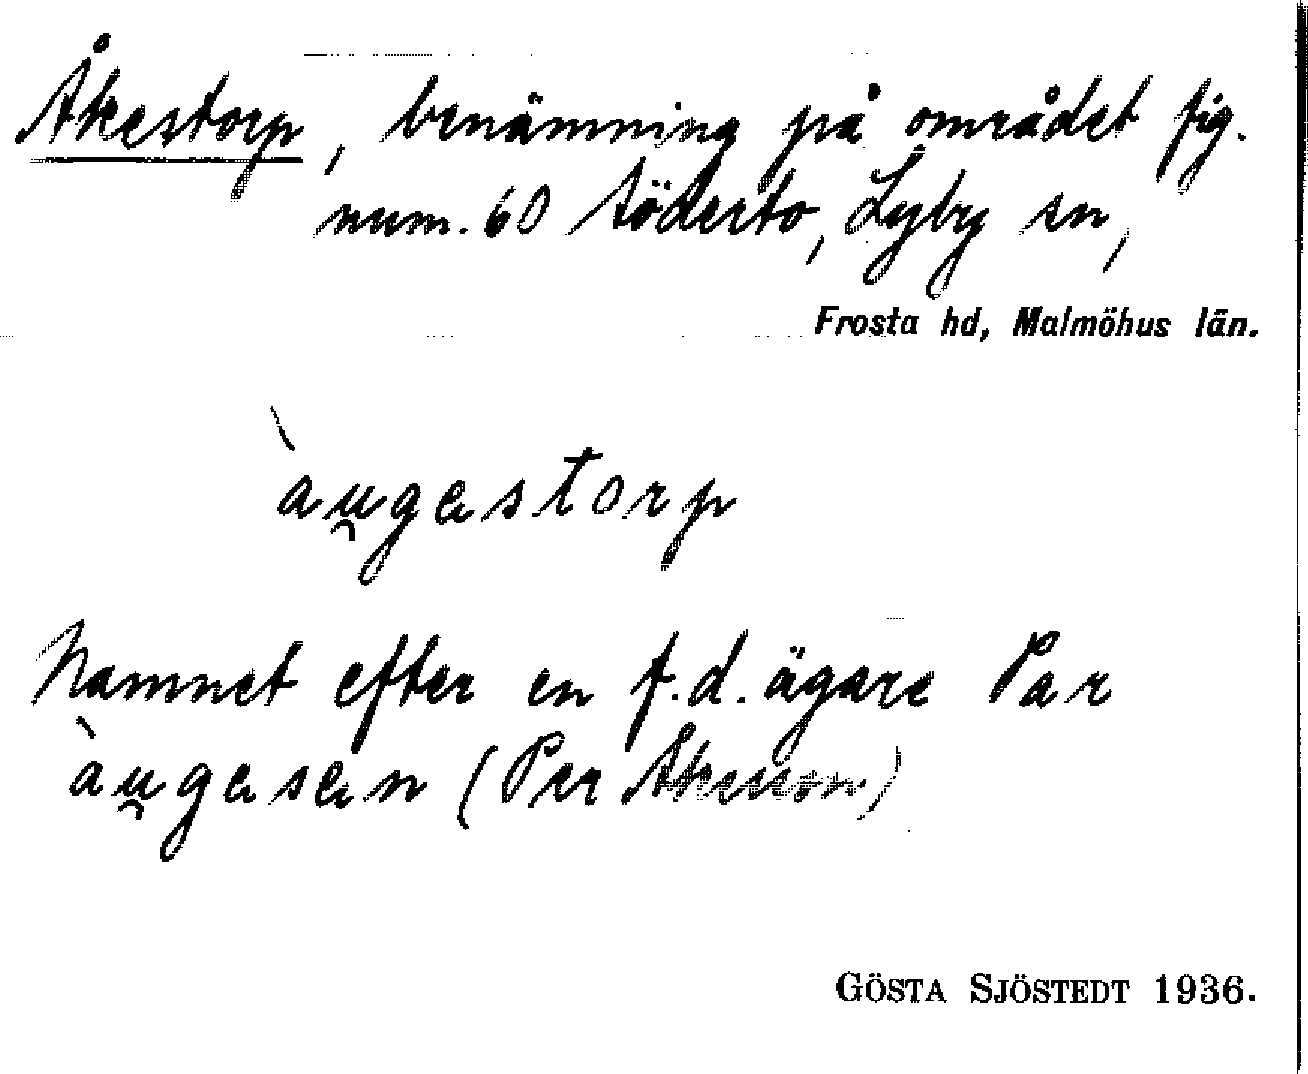 Åkestorp, benämning på området fig.
num. 60 Söderto, Lyby sn,
Frosta hd, Malmöhus län.
àu̯gestorp
Namnet efter en f.d. ägare Par
àu̯gesen (Per Åkesson)
GÖSTA SJÖSTEDT 1936.